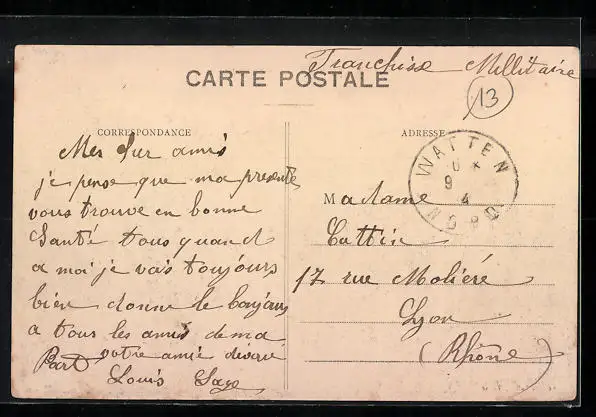 Franchise Millitaire
CARTE POSTALE
13
CORRESPONDANCE
ADRESSE
WATTEN
9
4
NORD
Mes Sur amis
je pense que ma presente
vous trouve en bonne
Santé tous quand
a moi je vais toujours
bien donne le bonjour
a tous les amis de ma
Part votre amie
Louis
Madame
Cattin
17 rue Moliére
Lyon
(Rhône)